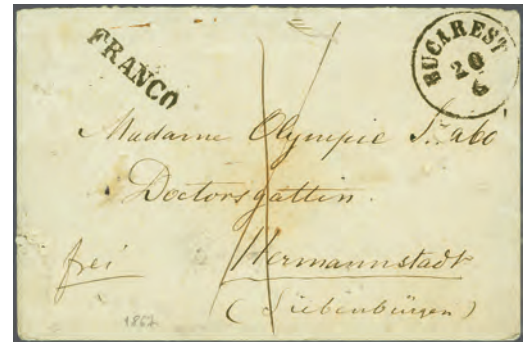 FRANCO
BUCAREST
20
6
Madame Olympie Szabo
Doctorsgattin.
frei
Hermannstadt
(Siebenbürgen)
1867